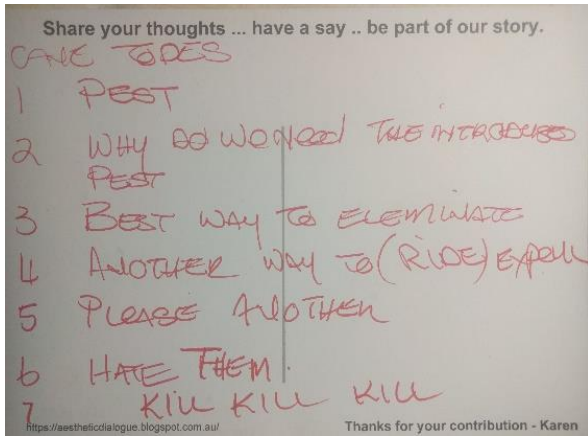 Share your thoughts ... have a say .. be part of our story.
CANE TODES
1 PEST
2 WHY DO WE NEED THE INTRODUCED
PEST
3 BEST WAY TO ELEMINATE
4 ANOTHER WAY TO (RIDE) EXPELL
5 PLEASE ANOTHER
6 HATE THEM
7 KILL KILL KILL
https://aestheticdialogue.blogspot.com.au/ Thanks for your contribution - Karen